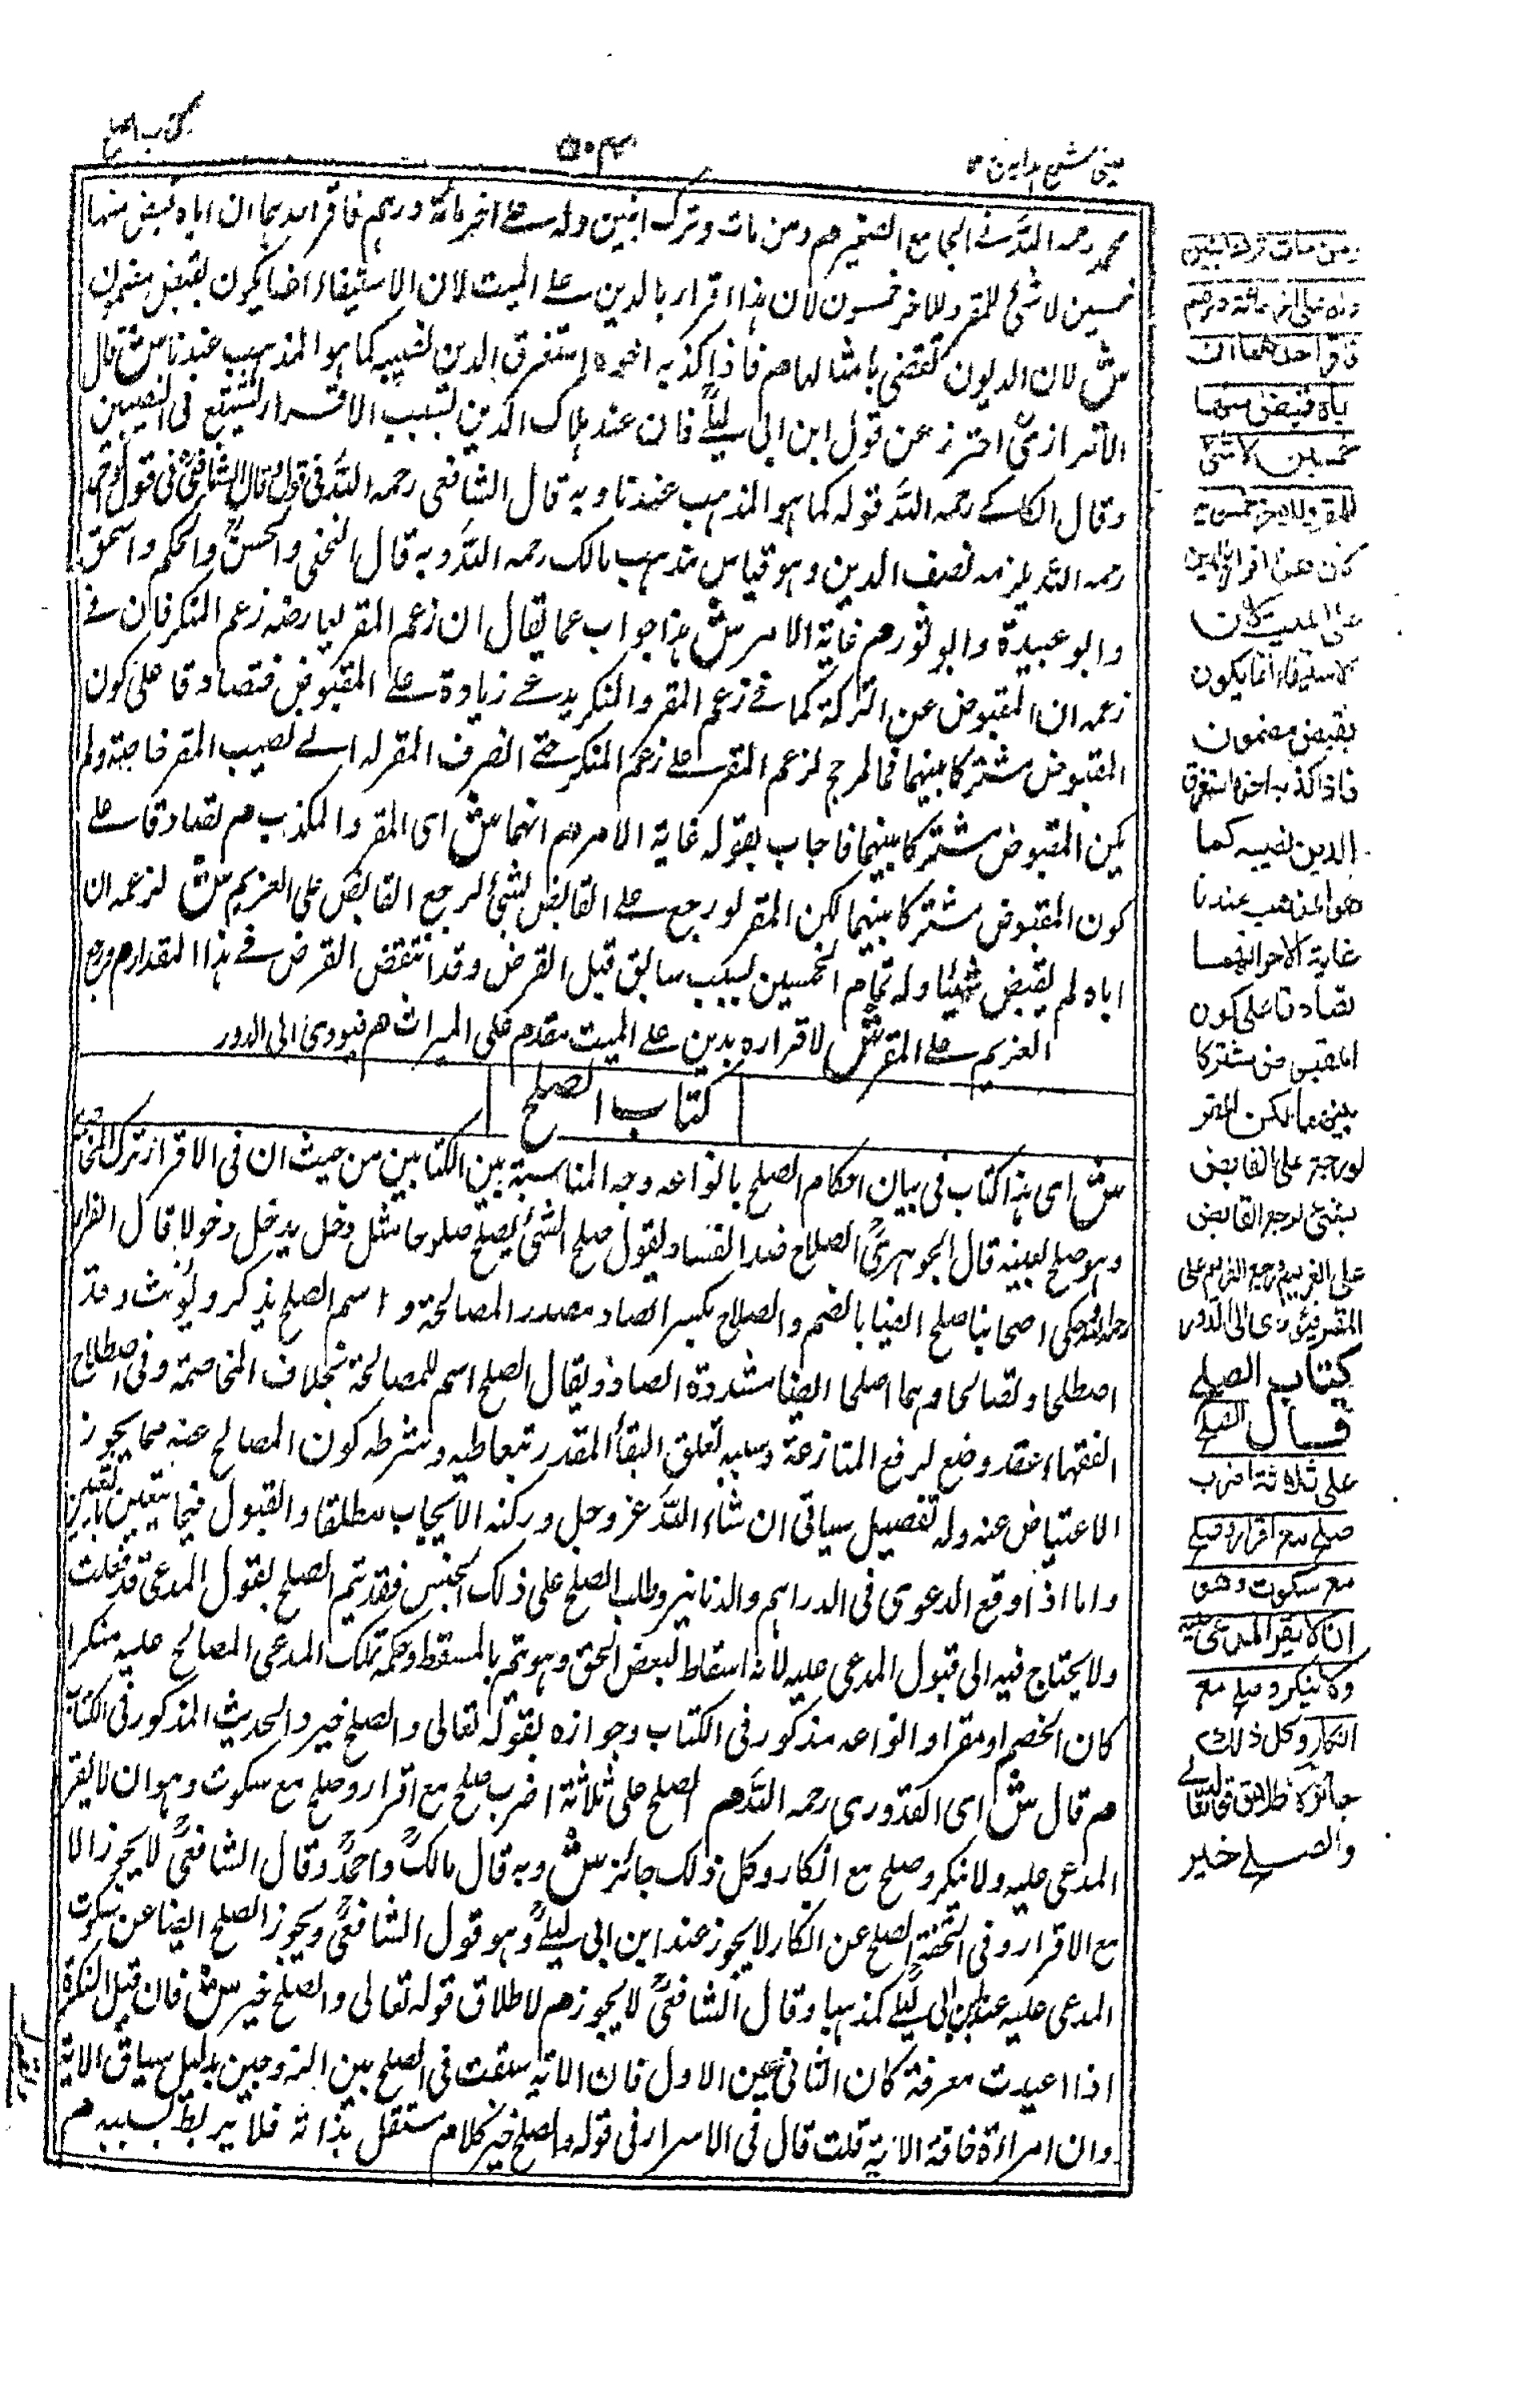 عینی شرح ہدایہ ج ۳
۵۰۴
کتاب الصلح
محمد رحمه الله في الجامع الصغير م ومن مات وترك ابنين وله على اخر مائة درهم فاقر احدهما ان اباه قبض منها
خمسين لا شئ للمقر وللاخر خمسون لان هذا اقرار بالدين على الميت لان الاستيفاء انما يكون بقبض مضمون
ش لان الديون تقضى بامثالها م فاذا كذبه اخوه استغرق الدين نصيبه كما هو المذهب عندنا ش قال
الاترازىؒ احترز عن قول ابن ابى ليلىؒ فان عند هلاك الدين بسبب الاقرار يشيع فى النصيبين
وقال الكاكى رحمه الله قوله كما هو المذهب عندنا وبه قال الشافعى رحمه الله فى قول وقال الشافعىؒ فى قول واحمد
رحمه الله يلزمه نصف الدين وهو قياس مذهب مالك رحمه الله وبه قال النخعى والحسنؒ والحكم واسحق
وابو عبيدة وابو ثور م غاية الامر ش هذا جواب عما يقال ان زعم المقر يعارضه زعم المنكر فان فى
زعمه ان المقبوض عن التركة كما فى زعم المقر والمنكر يدعى زيادة على المقبوض فتصادقا على كون
المقبوض مشتركا بينهما فما المرجح لزعم المقر على زعم المنكر حتى انصرف المقر له الى نصيب المقر خاصة ولم
يكن المقبوض مشتركا بينهما فاجاب بقوله غاية الامر م انهما ش اى المقر والمكذب م تصادقا على
كون المقبوض مشتركا بينهما لكن المقر لو رجع على القابض بشئ لرجع القابض على الغريم ش لزعمه ان
اباه لم يقبض شيئا وله تمام الخمسين بسبب سابق قبل القرض وقد انتقض القرض فى هذا المقدار م ورجع
الغريم على المقر ش لاقراره بدين على الميت مقدم على الميراث م فيودى الى الدور
كتاب الصلح
ش اى هذا كتاب فى بيان احكام الصلح بانواعه وجه المناسبة بين الكتابين من حيث ان فى الاقرار ترك المخاصمة
وهو صلح بعينه قال الجوهرىؒ الصلاح ضد الفساد يقول صلح الشئ يصلح صلوحا مثل دخل يدخل دخولا قال الفراء
رحمه الله حكى اصحابنا صلح ايضا بالضم والصلاح بكسر الصاد مصدر المصالحة و اسم الصلح يذكر ويونث وقد
اصطلحا وتصالحا وهما اصلحا ايضا مشددة الصاد ويقال الصلح اسم للمصالحة بخلاف المخاصمة وفى اصطلاح
الفقهاء عقد وضع لرفع المنازعة وسببه تعلق البقاء المقدر بتعاطيه وشرطه كون المصالح عنه مما يجوز
الاعتياض عنه وله تفصيل سياتى ان شاء الله عز وجل وركنه الايجاب مطلقا والقبول فيما يتعين بالتعيين
واما اذا وقع الدعوى فى الدراهم والدنانير وطلب الصلح على ذلك الجنس فقد يتم الصلح بقول المدعى قد فعلت
ولا يحتاج فيه الى قبول المدعى عليه لانه اسقاط لبعض الحق وهو يتم بالمسقط وحكمه تملك المدعى المصالح عليه منكرا
كان الخصم او مقرا وانواعه مذكور فى الكتاب وجوازه بقوله تعالى والصلح خير والحديث المذكور فى الكتاب
م قال ش اى القدورى رحمه الله م الصلح على ثلاثة اضرب صلح مع اقرار وصلح مع سكوت وهو ان لا يقر
المدعى عليه ولا ينكر وصلح مع انكار وكل ذلك جائز ش وبه قال مالكؒ واحمدؒ وقال الشافعىؒ لا يجوز الا
مع الاقرار وفى التحفة الصلح عن انكار لا يجوز عند ابن ابى ليلىؒ وهو قول الشافعىؒ ويجوز الصلح ايضا عن سكوت
المدعى عليه عند ابن ابى ليلىؒ كمذهبنا وقال الشافعىؒ لا يجوز م لاطلاق قوله تعالى والصلح خير ش فان قيل النكرة
اذا اعيدت معرفة كان الثانى عين الاول فان الاية سيقت فى الصلح بين الزوجين بدليل سياق الاية
وان امراة خافت الاية قلت قال فى الاسرار فى قوله والصلح خير كلام مستقل بذاته فلا يربط بسببه م
ومن مات وترك ابنين
وله على اخر مائة درهم
فاقر احدهما ان
اباه قبض منها
خمسين لا شئ
للمقر وللاخر خمسون
لان هذا اقرار بالدين
على الميت لان
الاستيفاء انما يكون
بقبض مضمون
فاذا كذبه اخوه استغرق
الدين نصيبه كما
هو المذهب عندنا
غاية الامر انهما
تصادقا على كون
المقبوض مشتركا
بينهما لكن المقر
لو رجع على القابض
بشئ لرجع القابض
على الغريم ورجع الغريم على
المقر فيؤدى الى الدور
كتاب الصلح
قال الصلح
على ثلاثة اضرب
صلح مع اقرار وصلح
مع سكوت وهو
ان لا يقر المدعى عليه
ولا ينكر وصلح مع
انكار وكل ذلك
جائز لاطلاق قوله تعالى
والصلح خير